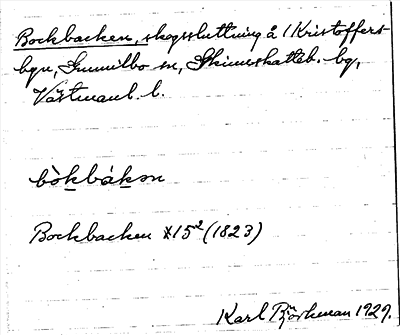 Bockbacken, skogssluttning å 1 Kristoffers-
bgn, Gunnilbo sn, Skinnskatteb. bg,
Västmanl. l.
bòkbákən
Bockbacken X15² (1823)
Karl Björkman 1929.